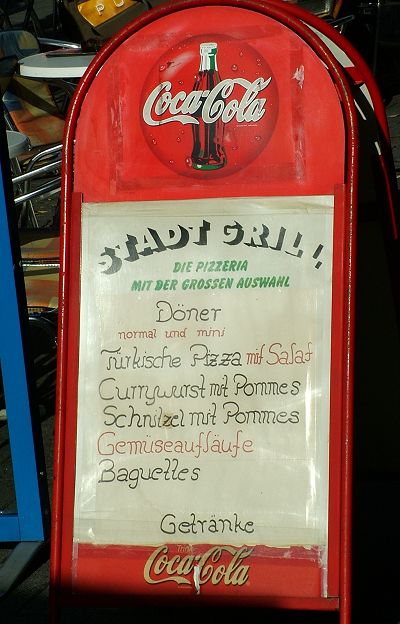 Coca-Cola
STADT GRILL
DIE PIZZERIA
MIT DER GROSSEN AUSWAHL
Döner
normal und mini
Türkische Pizza mit Salat
Currywurst mit Pommes
Schnitzel mit Pommes
Gemüseaufläufe
Baguettes
Getränke
Coca-Cola